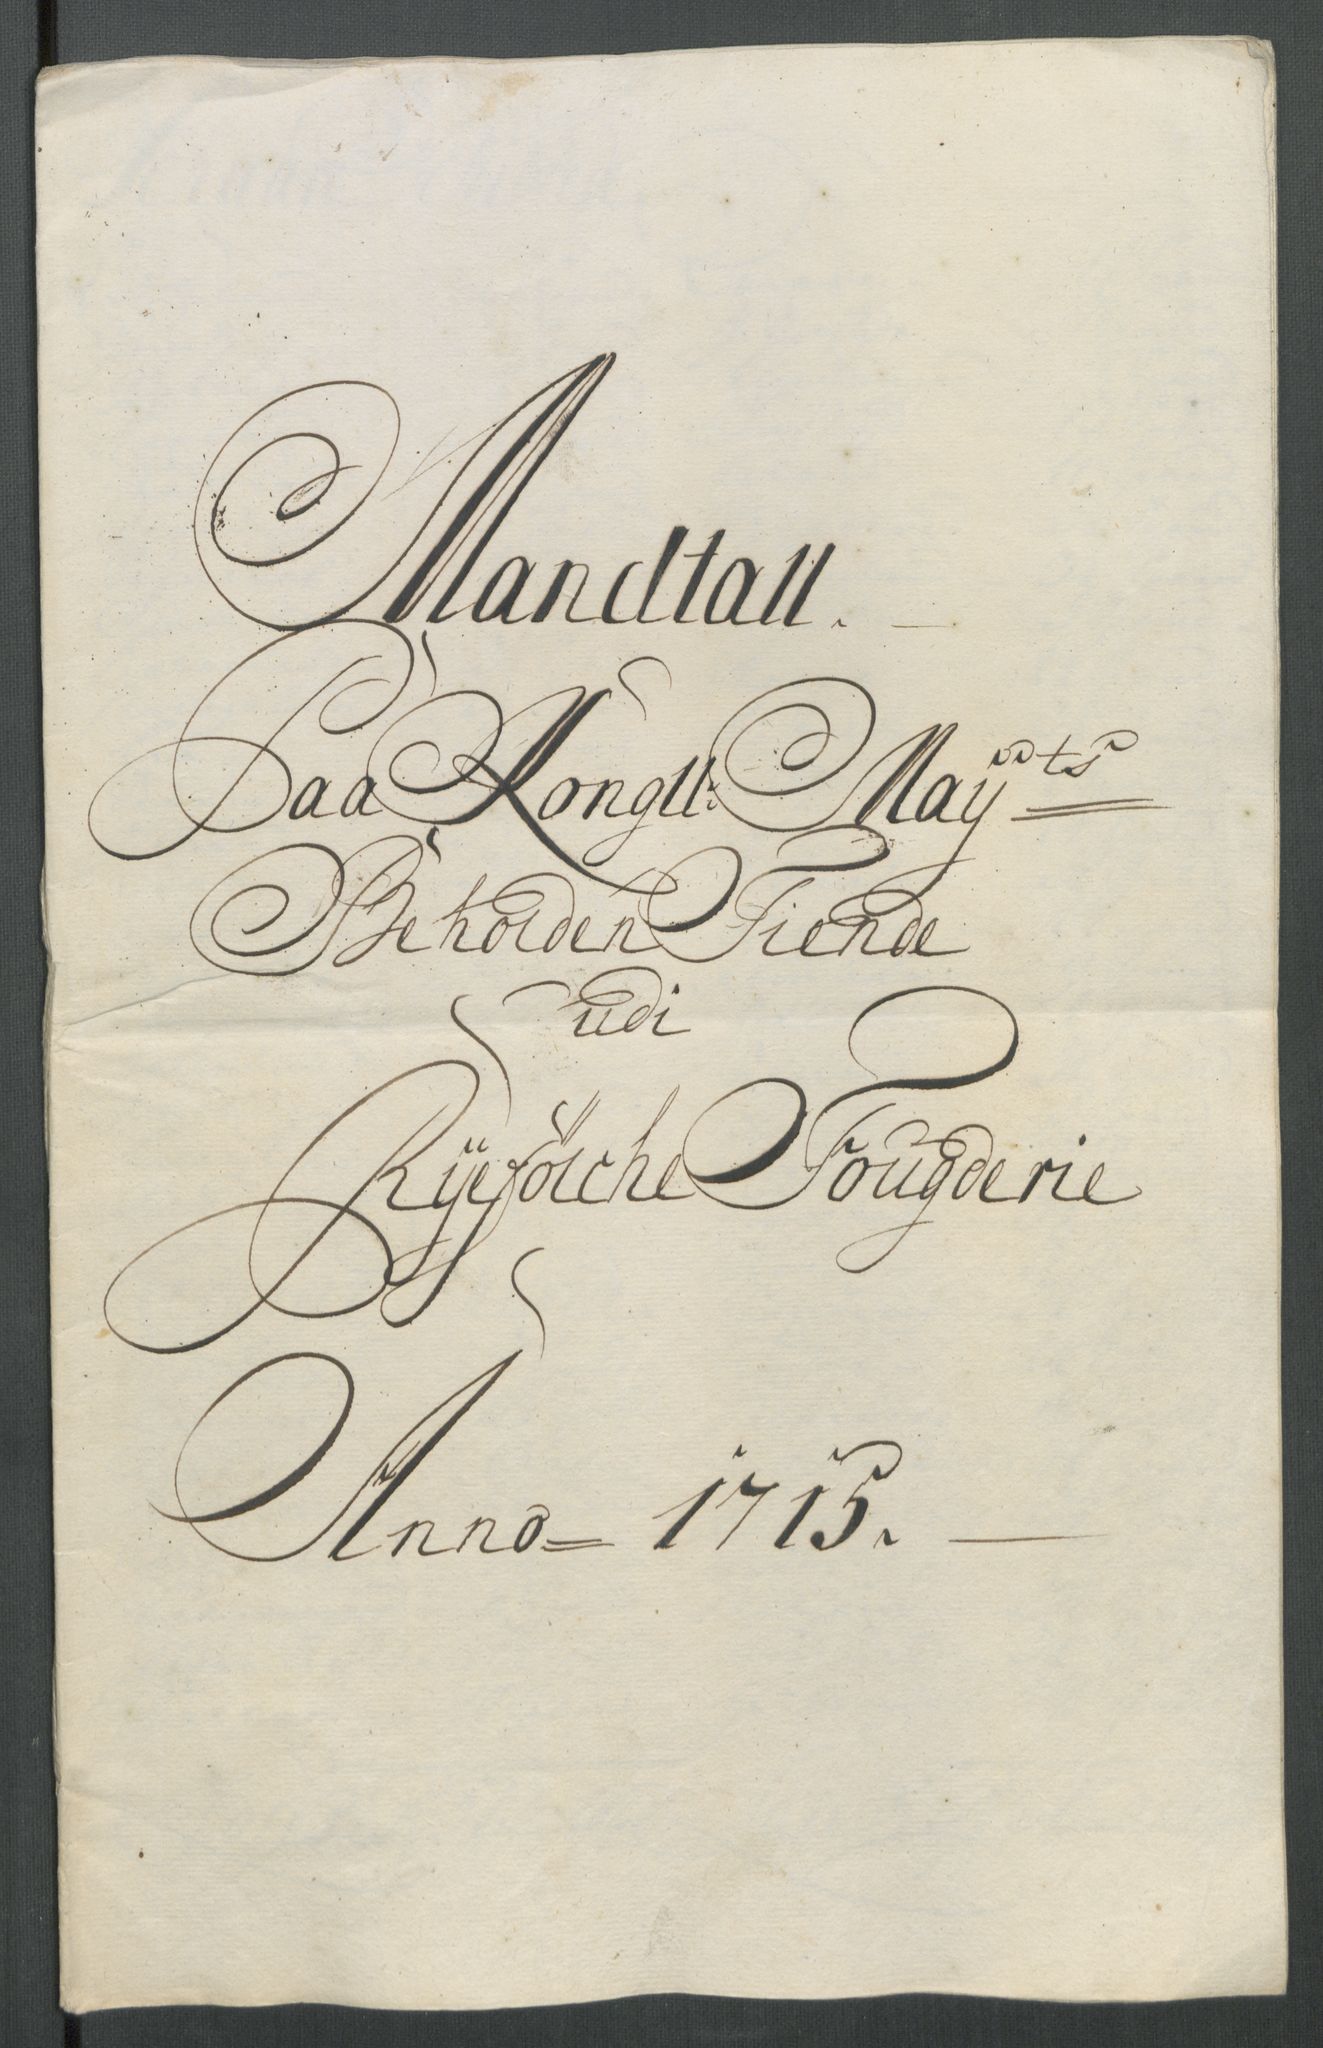 Mandtall.
Paa Kongll: Maÿ^ts
Beholden Tiende
udi
Rÿefölche Fougderie
Anno 1715.